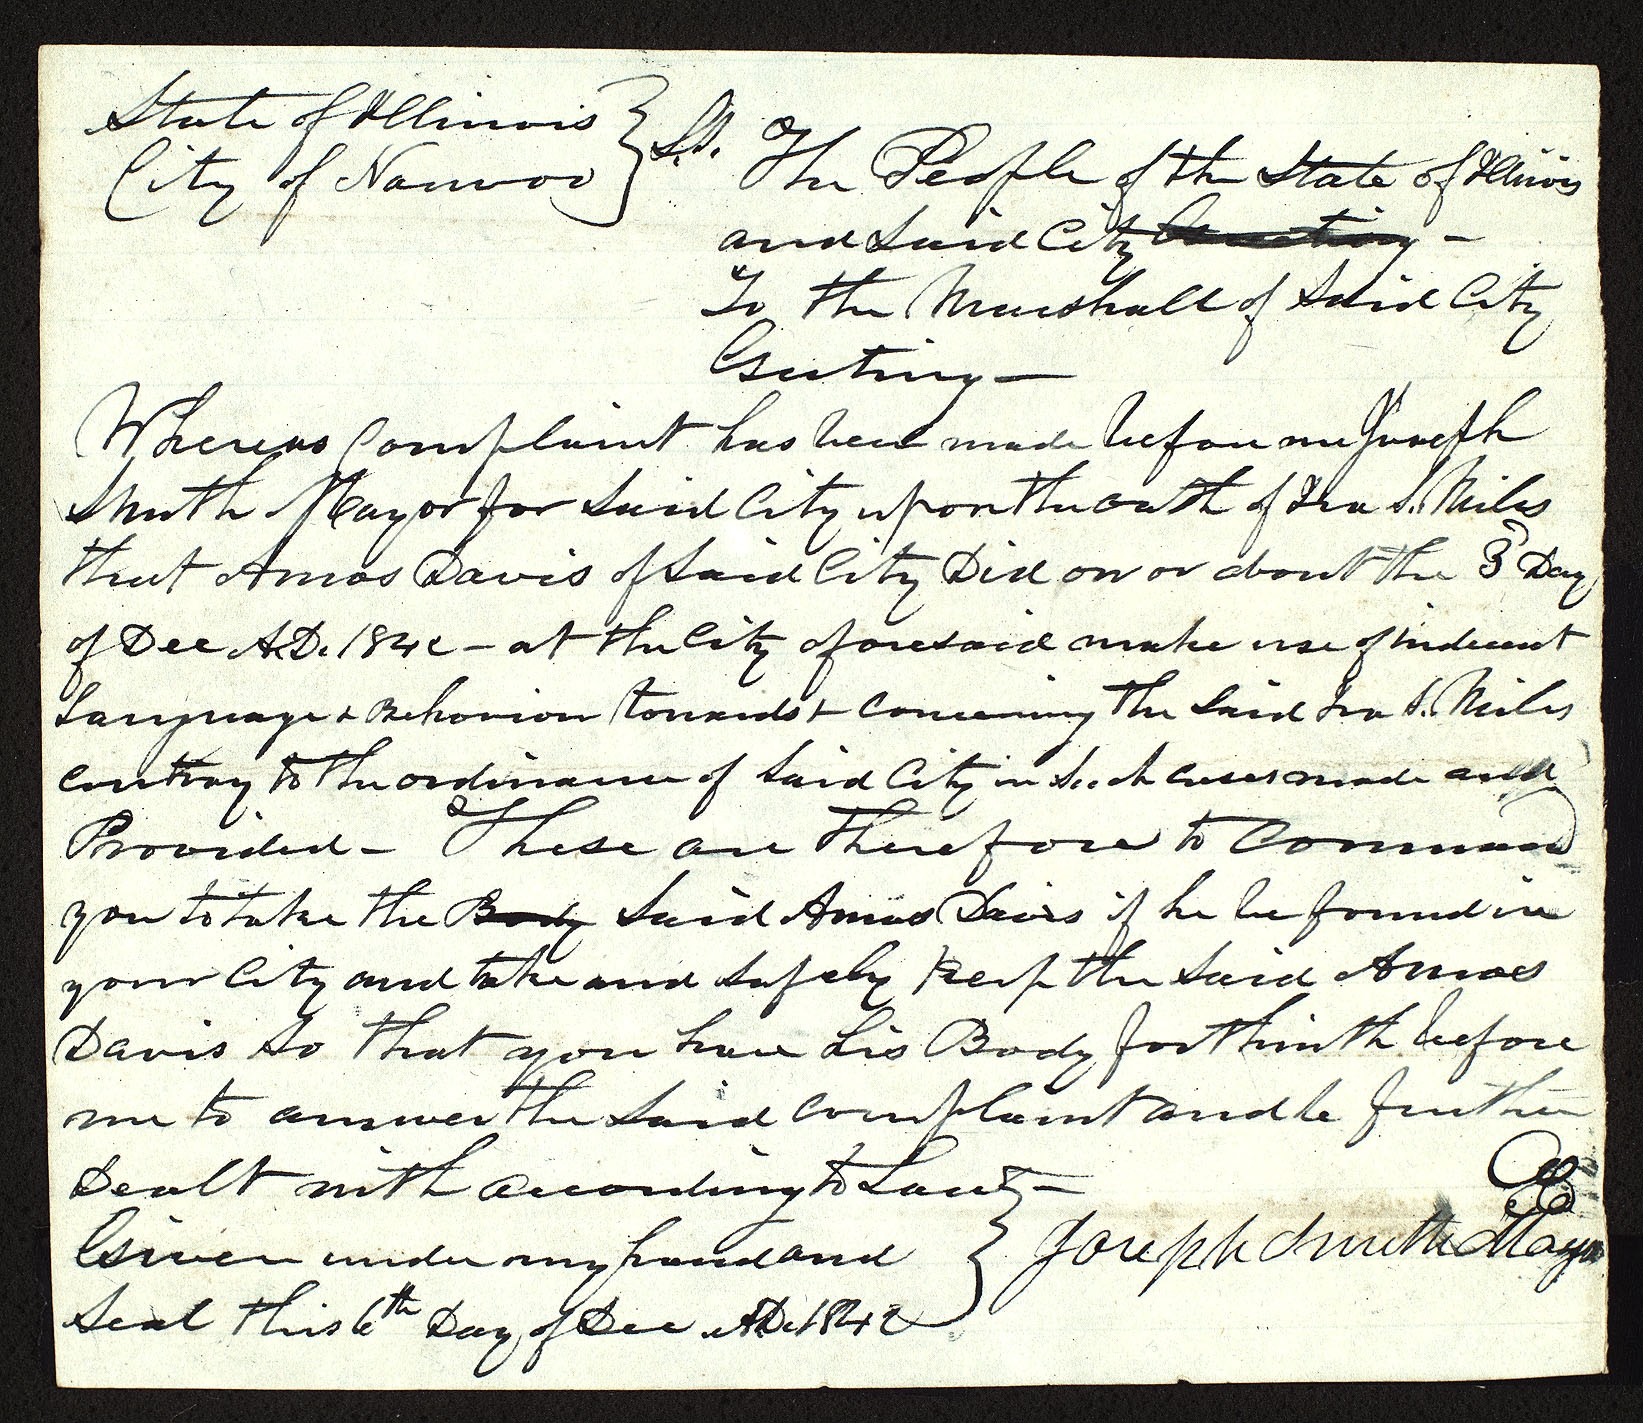 State of Illinois } S.S. The People of the State of Illinois
City of Nauvoo } and Said City Greeting —
To the Marshall of Said City
Greeting —
Whereas Complaint has been made before me Joseph
Smith Mayor for Said City upon the oath of Ira S. Miles
that Amos Davis of Said City Did on or about the 3d Day
of Dec A.D. 1842 — at the City aforesaid make use of indecent
Language & Behavior towards & concerning the Said Ira S. Miles
contray to the ordinance of Said City in Such cases made and
Provided — These are therefore to Command
you to take the Body Said Amos Davis if he be found in
your City and take and Safely keep the Said Amos
Davis So that you have his Body forthwith before
me to answer the Said complaint and be further
Dealt with according to Law —
Given under my hand and } Joseph Smith Mayor
Seal this 6th Day of Dec A.D. 1842